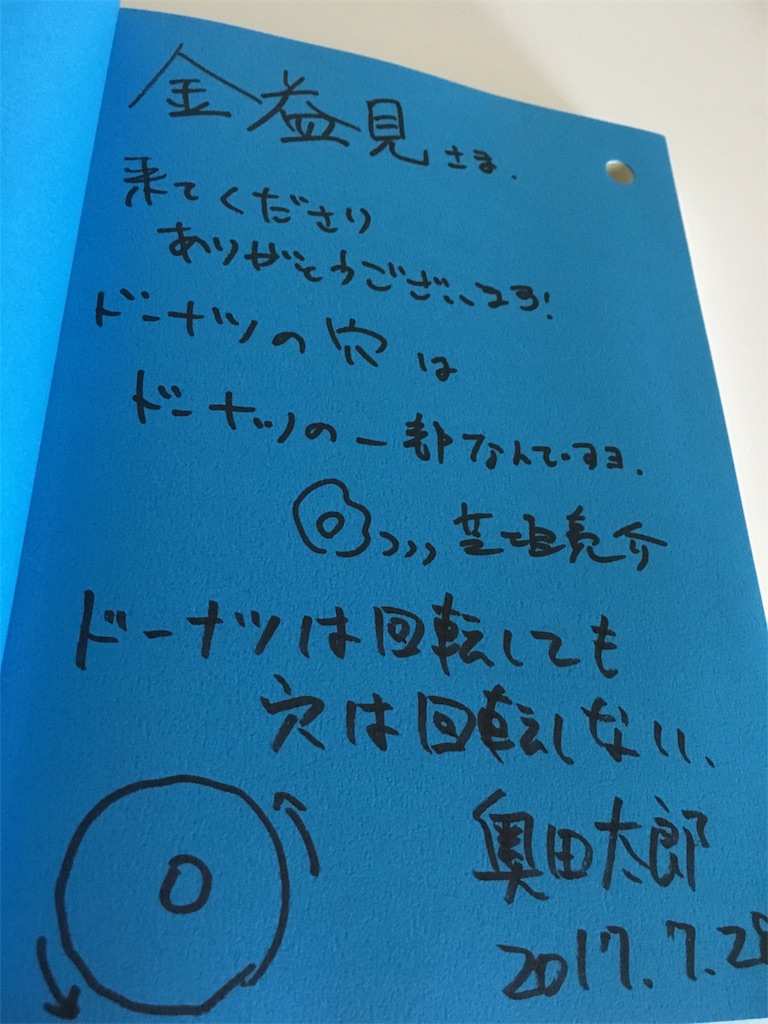 金益見さま.
来てくださり
ありがとうございます!
ドーナツの穴は
ドーナツの一部なんですヨ.
芝垣亮介
ドーナツは回転しても
穴は回転しない.
奥田太郎
2017.7.28